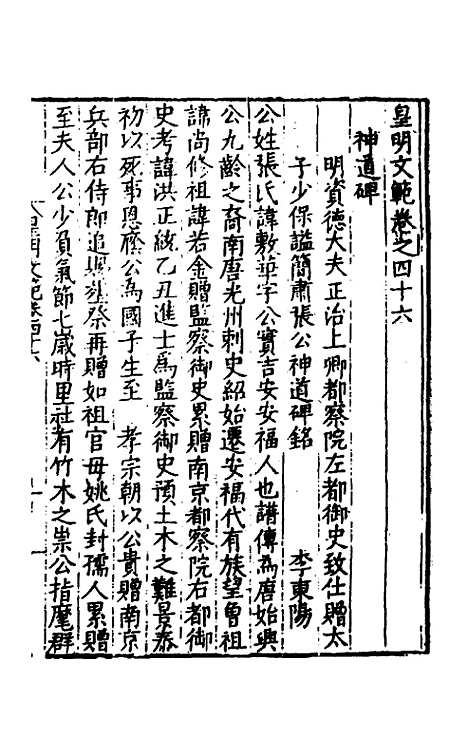 皇明文範卷之四十六
神道碑
明資德大夫正治上卿都察院左都御史致仕贈太
子少保諡簡肅張公神道碑銘 李東陽
公姓張氏諱敷華字公實吉安安福人也譜傳為唐始興
公九齡之裔南唐光州刺史紹始遷安福代有族望曾祖
諱尚修祖諱若金贈監察御史累贈南京都察院右都御
史考諱洪正統乙丑進士為監察御史預土木之難景泰
初以死事恩廕公為國子生至 孝宗朝以公貴贈南京
兵部右侍郎追賜祭再贈如祖官母姚氏封孺人累贈
至夫人公少負氣節七歲時里社有竹木之祟公指麾群
皇明文範卷四十六
一